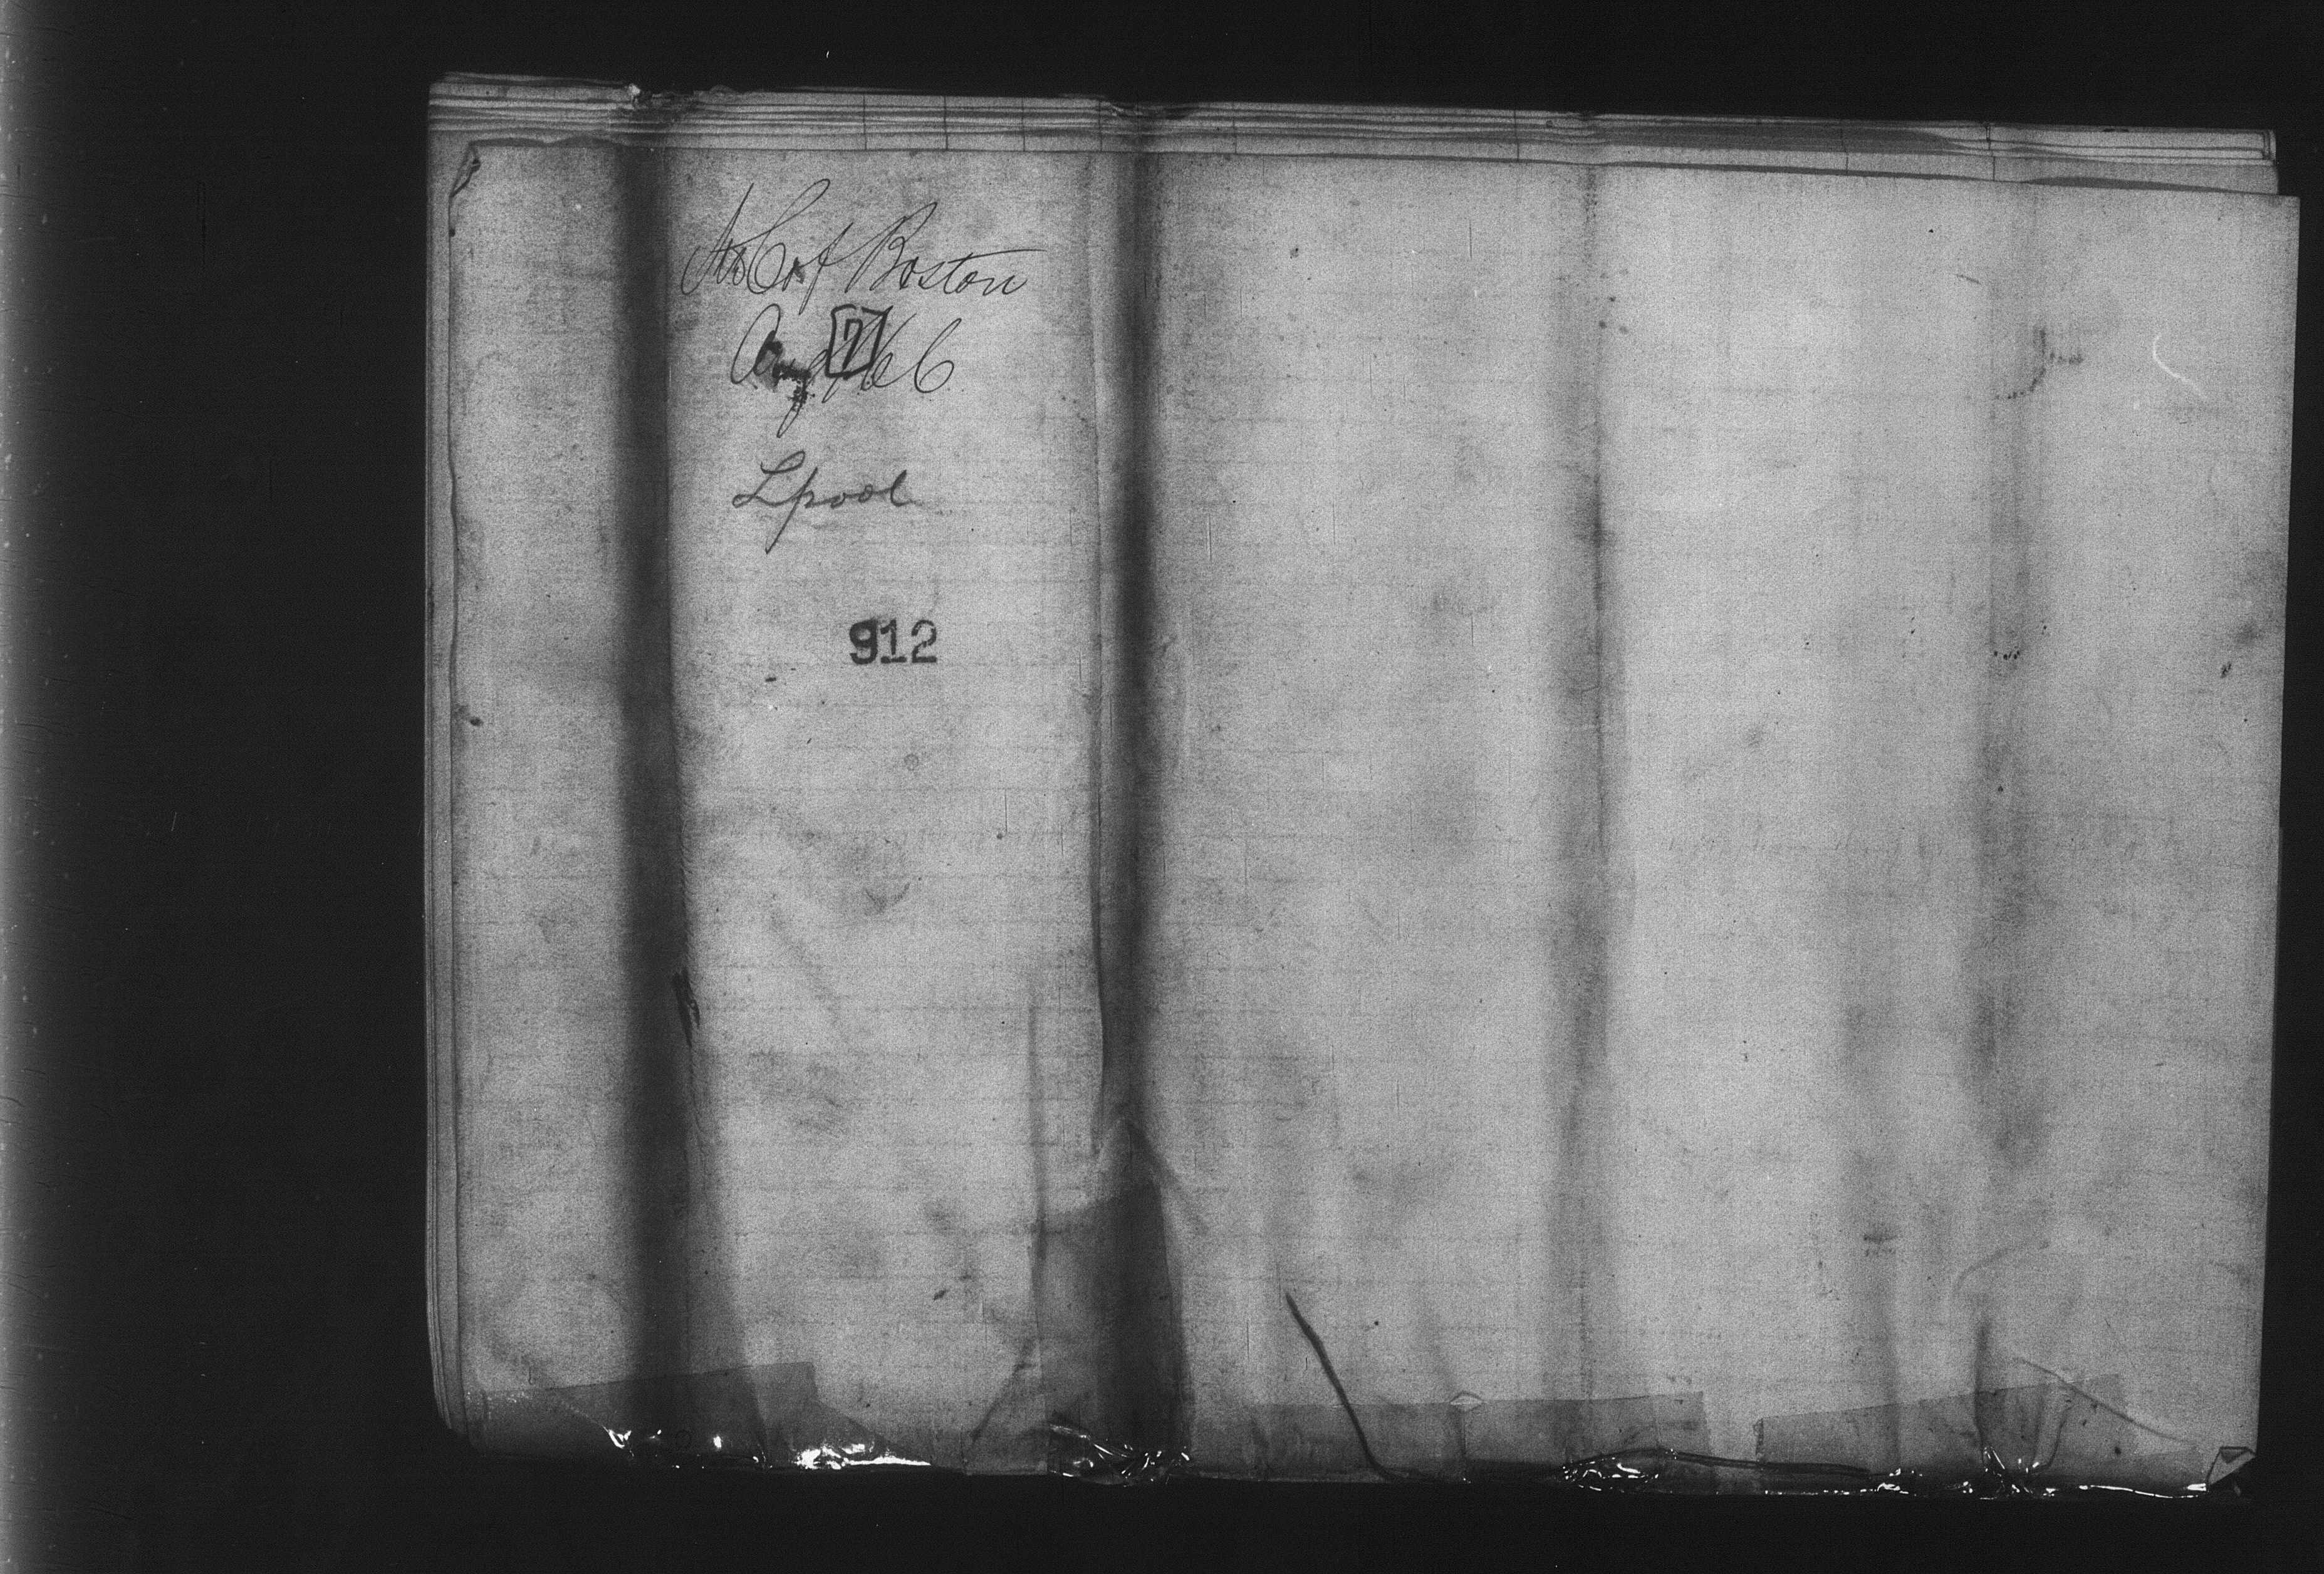 Str C of Boston
Aug 7/66
Lpool
912